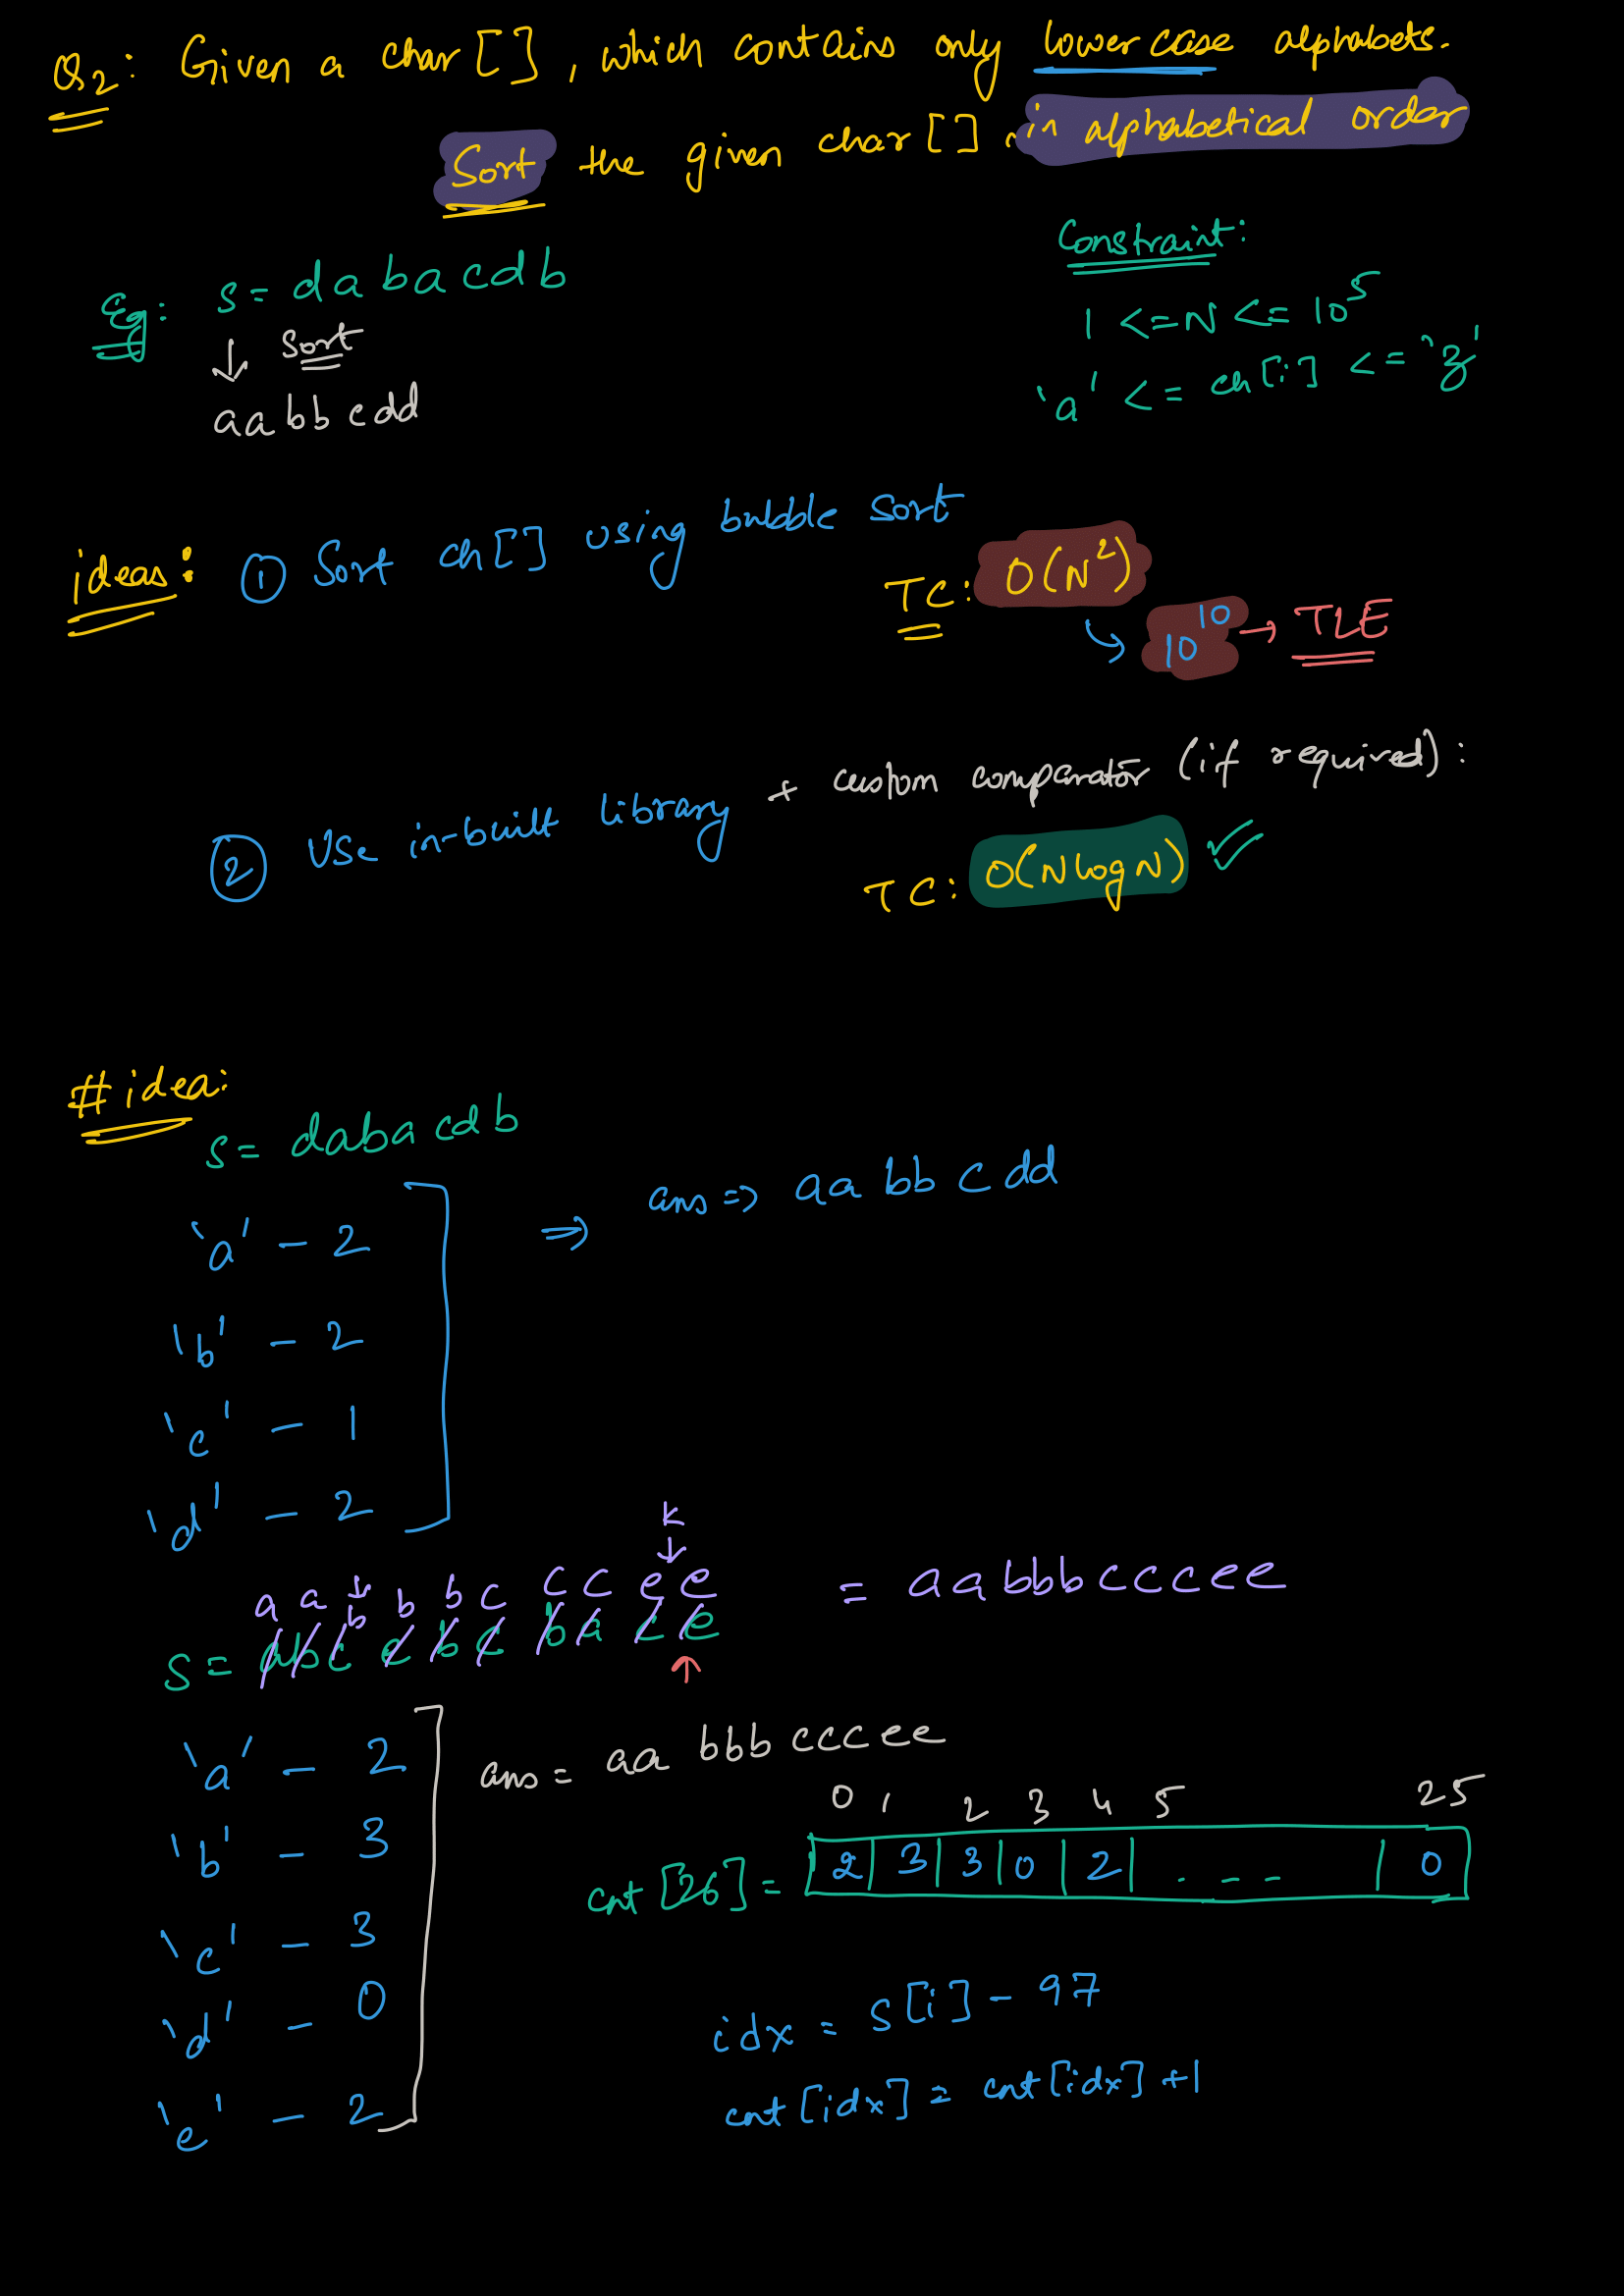 Q2: Given a char [ ], which contains only lower case alphabets.
Sort the given char [ ] in alphabetical order
Constraint:
1 <= N <= 10^5
'a' <= ch[i] <= 'z'
Eg: s = d a b a c d b
↓ Sort
a a b b c d d
ideas: ① Sort ch[ ] using bubble sort
TC: O(N^2)
↳ 10^10 → TLE
② Use in-built library + custom comparator (if required):
TC: O(N log N) ✓
# idea:
s = d a b a c d b
'a' - 2
'b' - 2
'c' - 1
'd' - 2
⇒ ans ⇒ a a b b c d d
k
↓
a a b b b c c c e e = a a b b b c c c e e
s = a b c e b c b a c e
↑
'a' - 2
'b' - 3
'c' - 3
'd' - 0
'e' - 2
ans = aa bbb ccc ee
0 1 2 3 4 5 25
cnt [26] = 2 | 3 | 3 | 0 | 2 | . - - - | 0
idx = s[i] - 97
cnt [idx] = cnt [idx] + 1